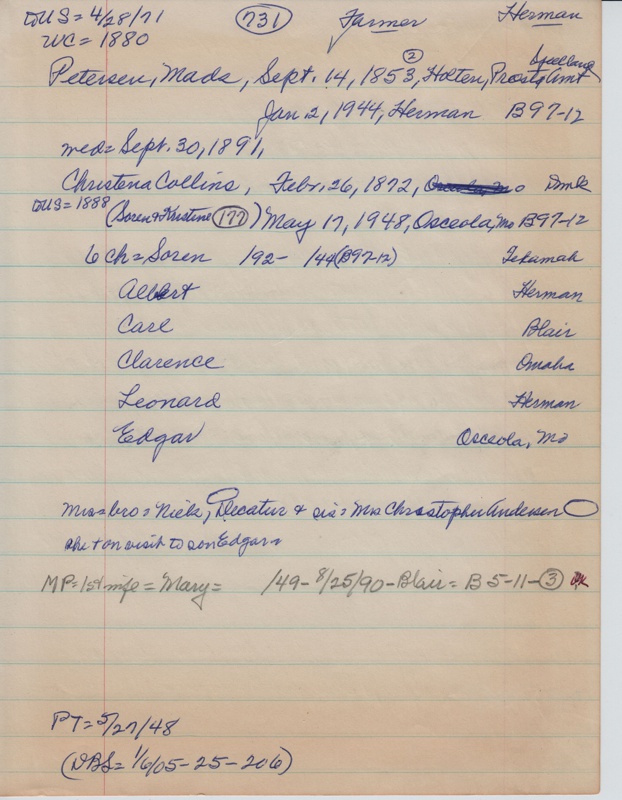 to US = 4/28/71 (731) Farmer Herman
WC = 1880
Petersen, Mads, Sept. 14, 1853, (2) Holten, Prosto Amt
Jan. 2, 1944, Herman B97-12
med = Sept. 30, 1891,
Christena Collins, Febr. 26, 1872, Dmk
to US = 1888 (Soren & Kristine (177)) May 17, 1948, Osceola, Mo B97-12
6 ch = Soren 192- /44 (B97-12) Tekamah
Albert Herman
Carl Blair
Clarence Omaha
Leonard Herman
Edgar Osceola, Mo
Mrs = bro = Niels, Decatur & sis = Mrs Christopher Andersen
she + on visit to son Edgar =
MP = 1st wife = Mary = /49 - 8/25/90 - Blair = B 5-11-(3) OK
PT = 5/27/48
(DBS = 1/6/05 - 25 - 206)